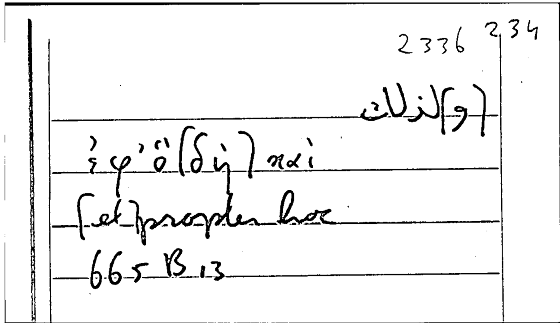 2336 234
[و]لذلك
ἐφ' ὃ (δὴ) καὶ
[et] propter hoc
665 B 13